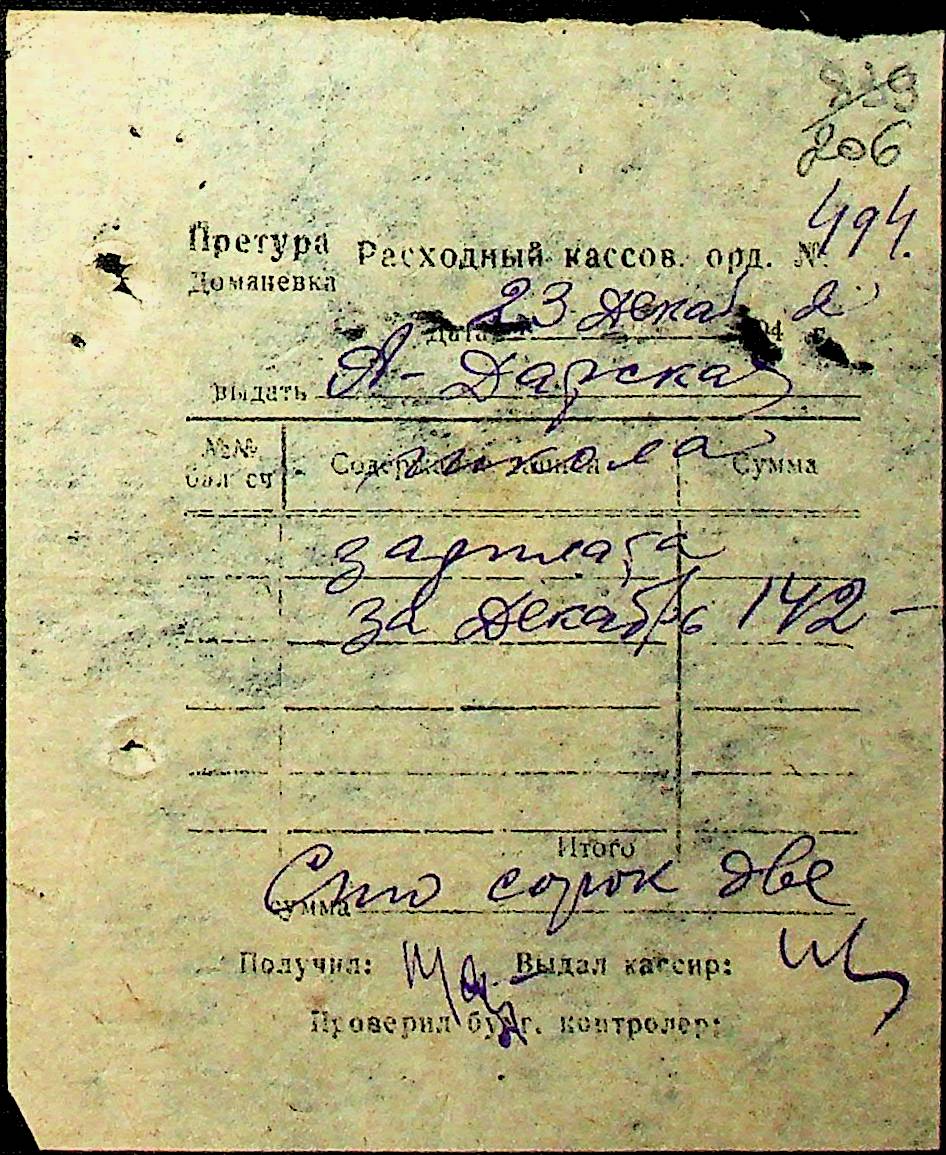 239
206
Претура Расходный кассов. орд. № 494.
Доманевка
23 декаб 2
Дата 194 г.
выдать А-Дарская
школа
№№ бал сч Содержание записи Сумма
зарплата
за декабрь 142 –
Итого
Сумма Сто сорок две
Получил: Выдал кассир:
Проверил бухг. контролер: